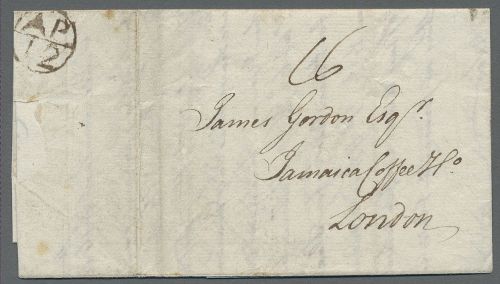 AP
12
16
James Gordon Esqr.
Jamaica Coffee Ho.
London